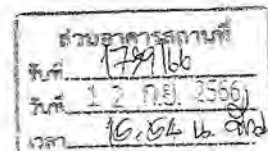 ส่วนอาคารสถานที่
รับที่ 1789/66
วันที่ 12 ก.ย. 2566
เวลา 15.54 น.